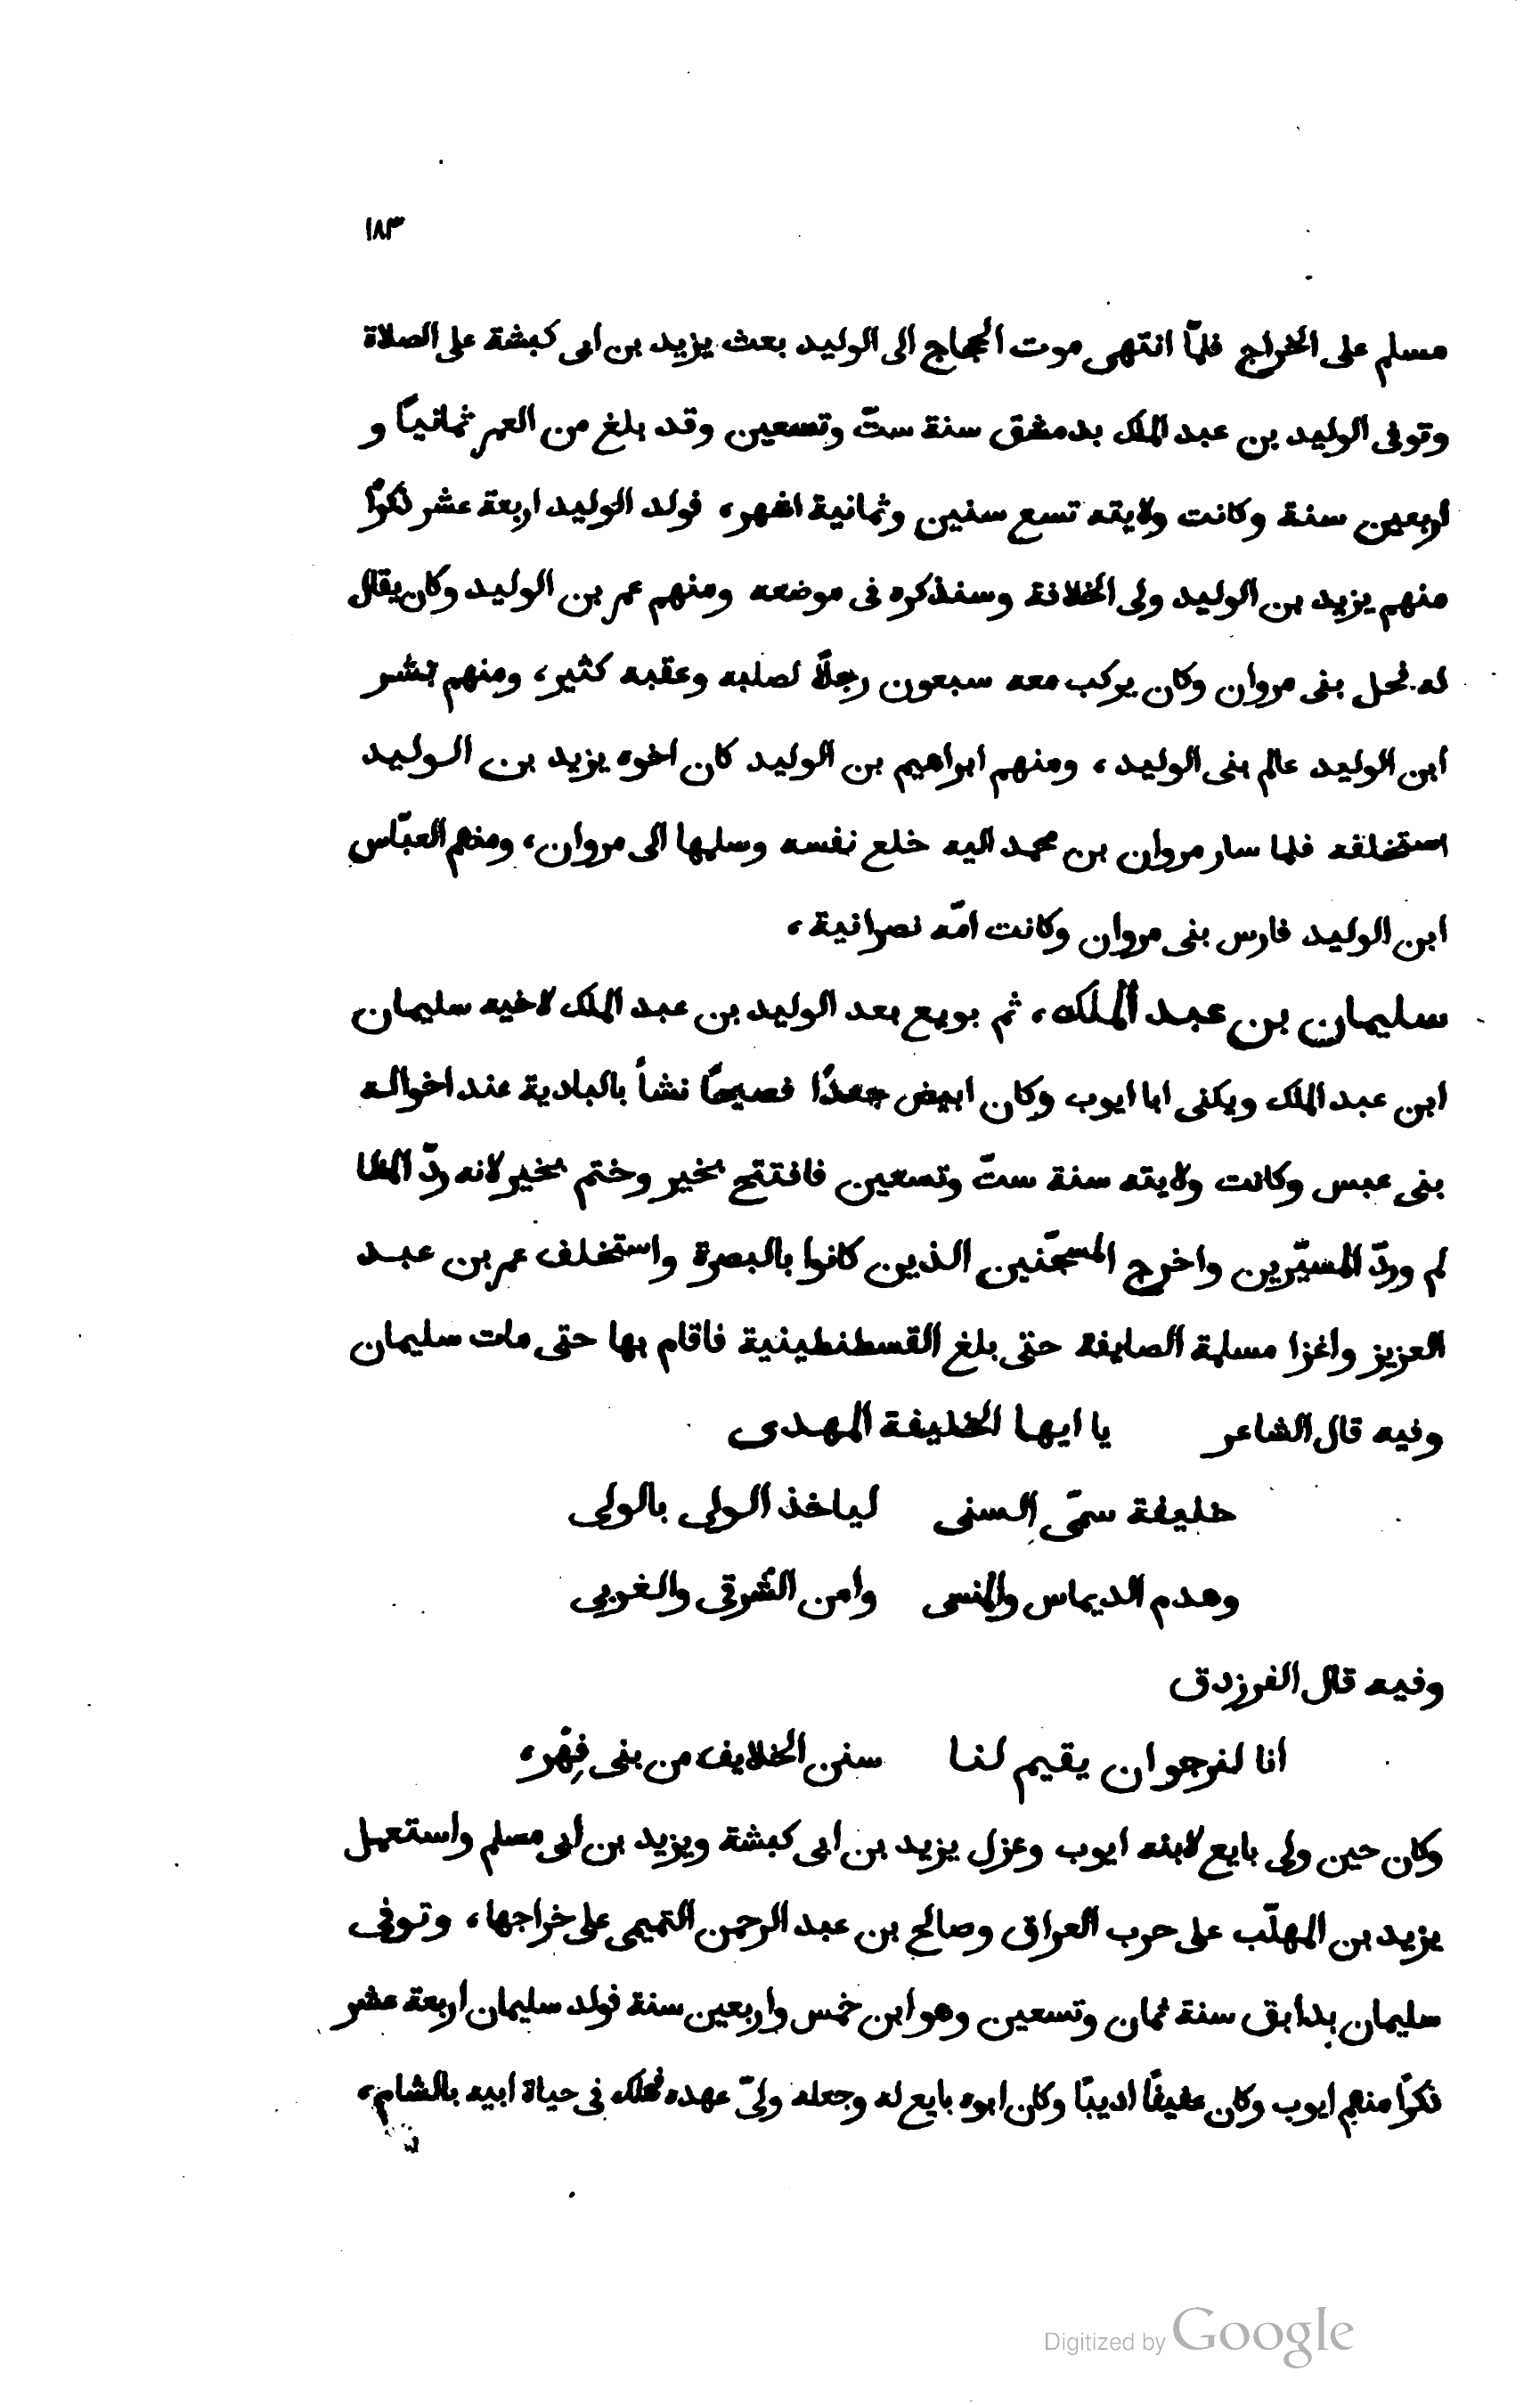 ١٨٣
مسلم على الخراج فلمّا انتهى موت الحجاج الى الوليد بعث يزيد بن ابى كبشة على الصلاة
وتوفى الوليد بن عبد الملك بدمشق سنة ستّ وتسعين وقد بلغ من العمر ثمانيًا و
اربعين سنة وكانت ولايته تسع سنين وثمانية اشهر، فولد الوليد اربعة عشر ذكرًا
منهم يزيد بن الوليد ولى الخلافة وسنذكره فى موضعه ومنهم عمر بن الوليد وكان يقال
له فحل بنى مروان وكان يركب معه سبعون رجلًا لصلبه وعقبه كثير، ومنهم بشر
ابن الوليد عالم بنى الوليد، ومنهم ابراهيم بن الوليد كان اخوه يزيد بن الوليد
استخلفه فلما سار مروان بن محمد اليه خلع نفسه وسلمها الى مروان، ومنهم العبّاس
ابن الوليد فارس بنى مروان وكانت امّه نصرانية،
سليمان بن عبد الملك، ثم بويع بعد الوليد بن عبد الملك لاخيه سليمان
ابن عبد الملك ويكنى ابا ايوب وكان ابيض جعدًا فصيحًا نشأ بالبادية عند اخواله
بنى عبس وكانت ولايته سنة ستّ وتسعين فافتتح بخير وختم بخير لانه ردّ المظا
لم وردّ المسيّرين واخرج المسجّنين الذين كانوا بالبصرة واستخلف عمر بن عبد
العزيز واغزا مسلمة الصايفة حتى بلغ القسطنطينية فاقام بها حتى مات سليمان
وفيه قال الشاعر يا ايها الخليفة المهدى
خليفة سمّى السنى لياخذ الولى بالولى
وهدم الديماس والمنسى وامن الشرقى والغربى
وفيه قال الفرزدق
انا لنرجو ان يقيم لنا سنن الخلايف من بنى فِهْر،
وكان حين ولى بايع لابنه ايوب وعزل يزيد بن ابى كبشة ويزيد بن ابى مسلم واستعمل
يزيد بن المهلّب على حرب العراق وصالح بن عبد الرحمن التميمى على خراجها، وتوفى
سليمان بدابق سنة ثمان وتسعين وهو ابن خمس واربعين سنة فولد سليمان اربعة عشر
ذكرًا منهم ايوب وكان عفيفًا اديبًا وكان ابوه بايع له وجعله ولىّ عهده فهلك فى حياة ابيه بالشام،
Digitized by Google